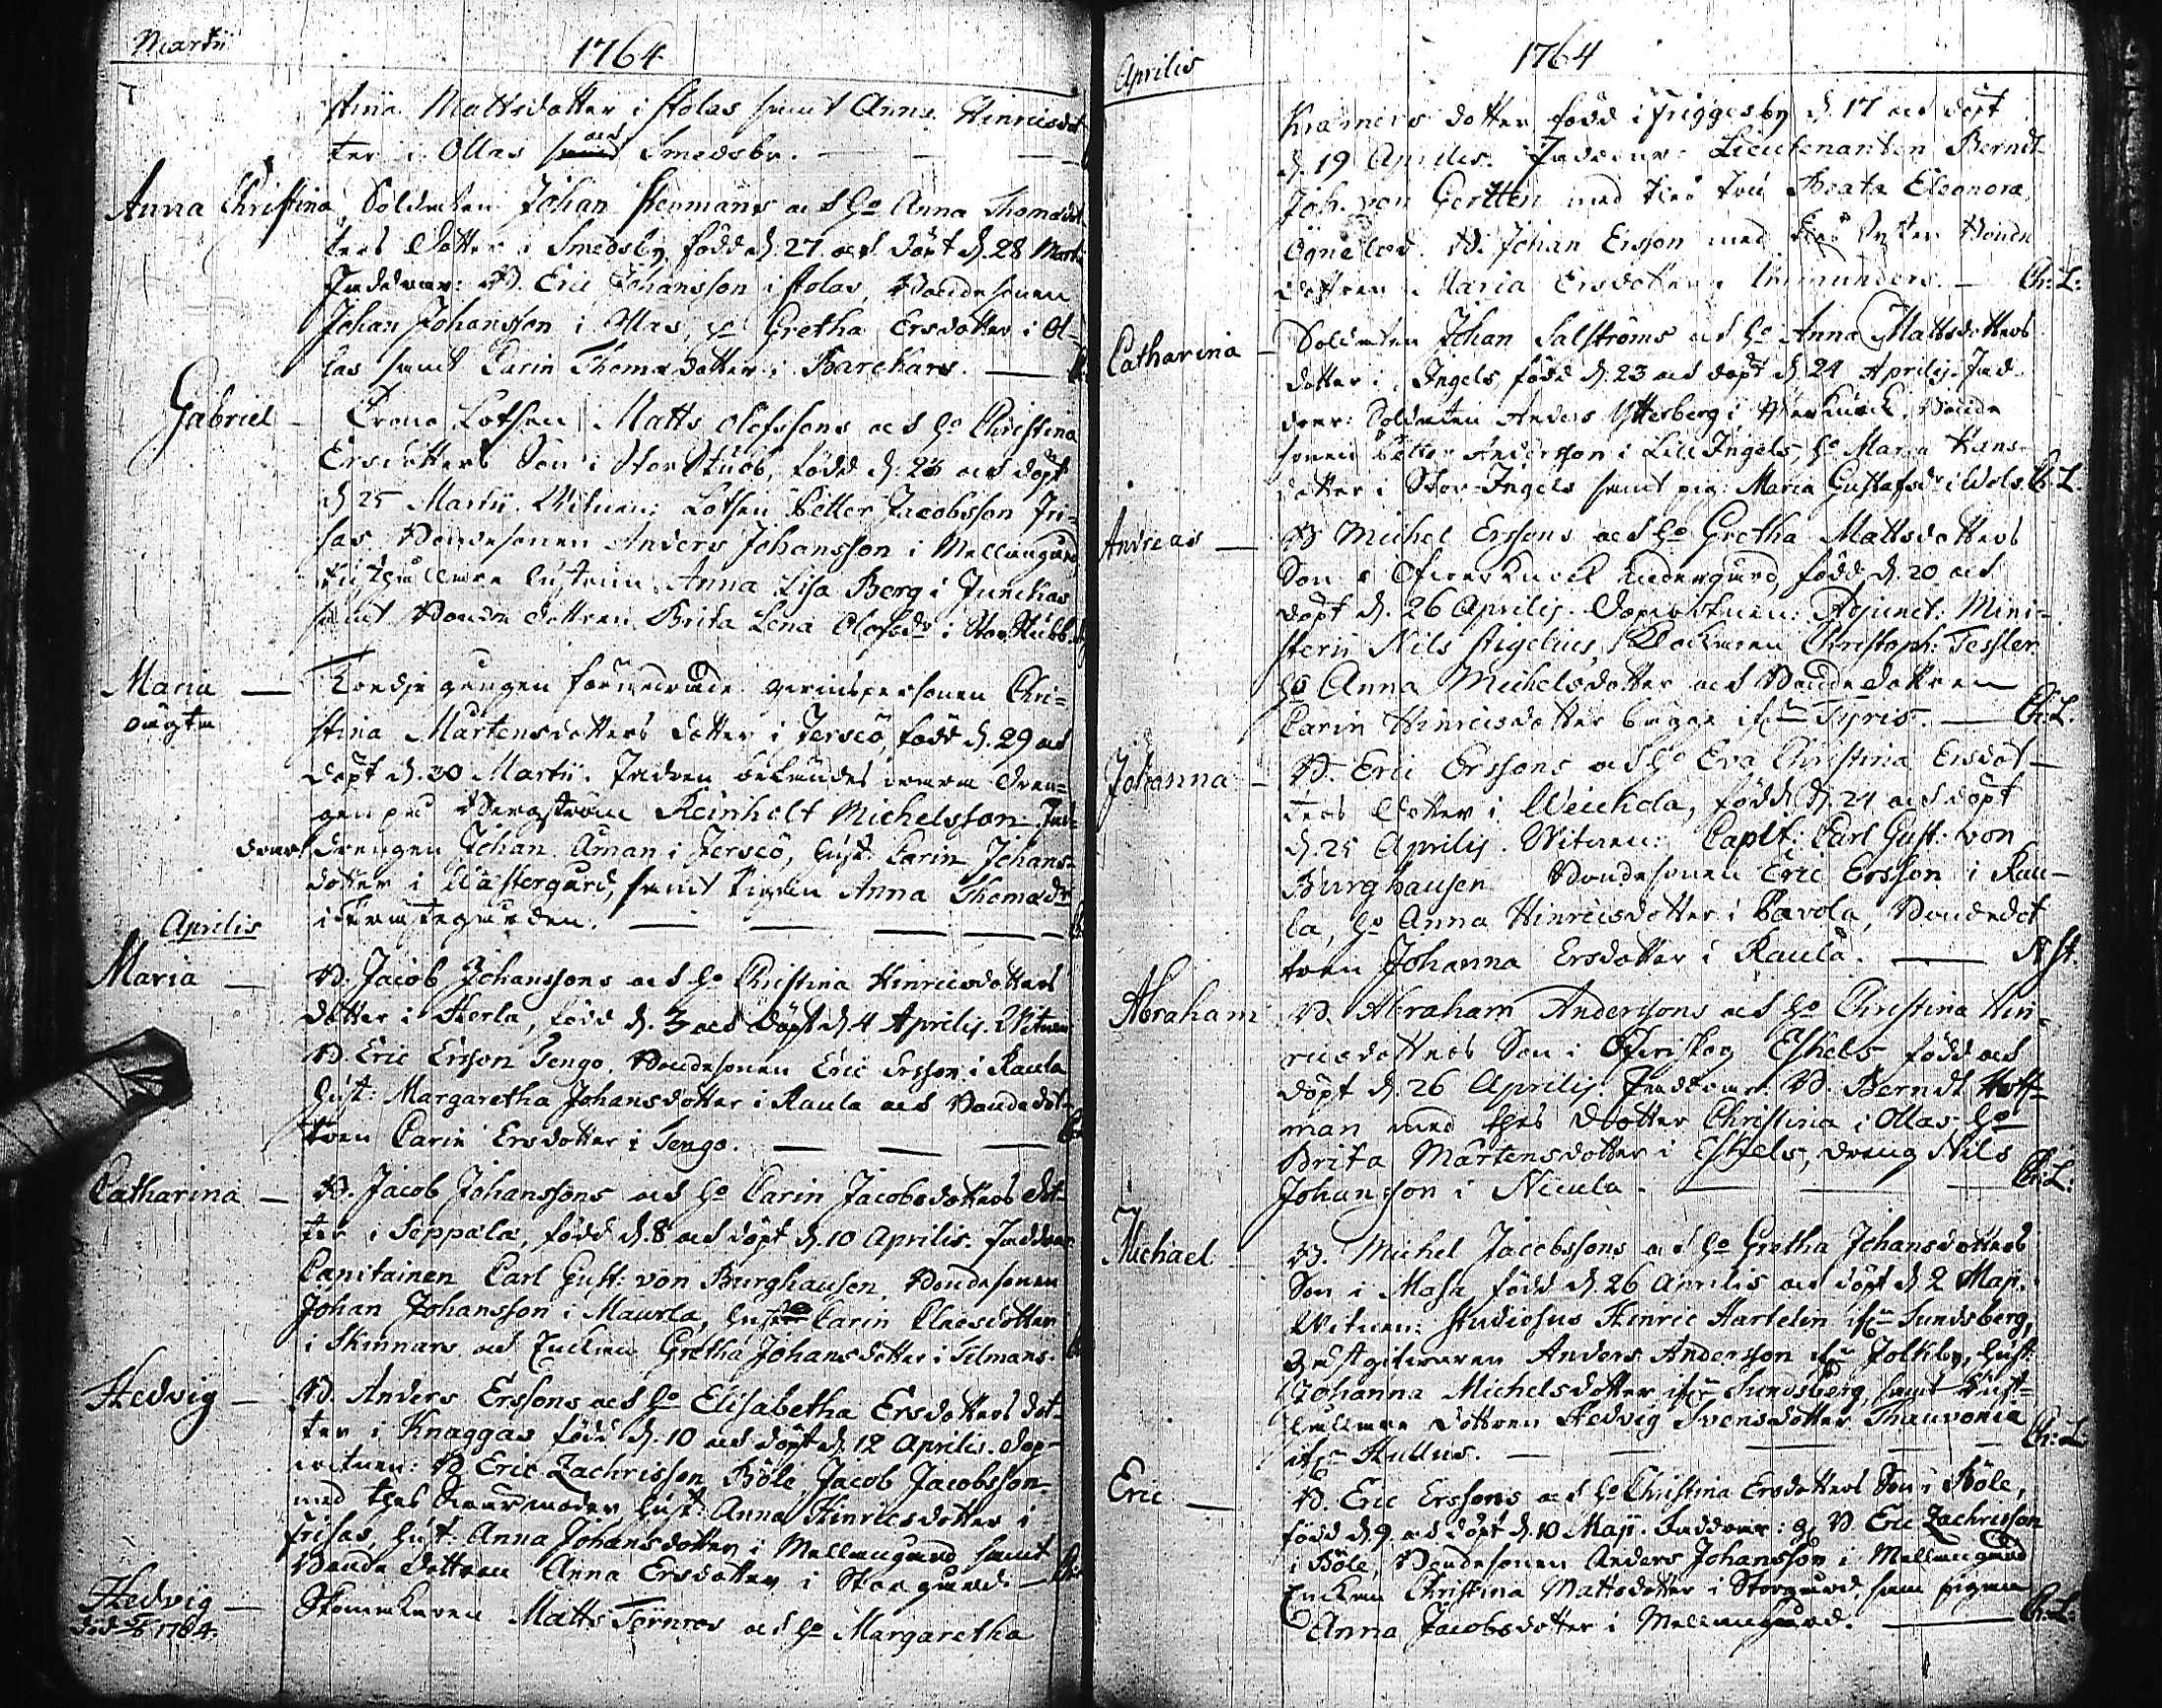 Martii
1764
stina Mattsdotter i stolas samt Anna Hinricsdot
ter i Ollas och Smedsby.
Anna Christina Soldaten Johan Stenmans och h:o Anna Thomædot
ters dotter i Smedsby född d. 27. och döpt d. 28 Martii
Faddrar: B. Eric Johansson i stolas, Bondesonen
Johan Johansson i Ollas, h:o Gretha Ersdotter i Ol=
las samt Carin Thomædotter i Barckars.
Gabriel - Crono Lotsen Matts Olofssons och h:o Christina
Ersdotters Son i Stor Stubb, född d. 23 och döpt
d 25 Martii. Witnen: Lotsen Petter Jacobsson Fri=
sas Bondesonen Anders Johansson i Mellangård
hustrun Anna Lisa Berg i Junckas
samt Bonde dottren Brita Lena Olofsdr i Stor Stubb.
Maria oägta
qvinspersonen Chri=
stina Mårtensdotters dotter i Jersö, född d. 29 och
döpt d. 30 Martii. Fadren
Reinholt Michelsson. Fad=
drar drengen Johan Åman i Jersö, hust. Carin Johans=
dotter i Wästergård, samt pigan Anna Thomædr
Aprilis
Maria — B. Jacob Johanssons och h:o Christina Hinricsdotters
dotter i Sterla, född d. 3 och döpt d. 4 Aprilis. Witnen
B. Eric Ersson Tengo. Bondesonen Eric Ersson i Raula
hust: Margaretha Johansdotter i Raula och Bondedot=
tren Carin Ersdotter i Tengo.
Catharina — B. Jacob Johanssons och h:o Carin Jacobsdotters dot=
ter i Seppälä, född d. 8 och döpt d. 10 Aprilis. Faddrar
Capitainen Carl Gust: von Burghausen, Bondesonen
Johan Johansson i Maurla, hust Carin Claesdotter
i Skinnars och Enckan Gretha Johansdotter i Tilmans.
Hedvig — B. Anders Erssons och h:o Elisabetha Ersdotters dot=
ter i Knaggas född d. 10 och döpt d. 12 Aprilis. Dop=
witnen: B Eric Zachrisson Böle, Jacob Jacobsson
med thes hust: Anna Hinricsdotter i
Frisas, hust: Anna Johansdotter i Mellangård samt
Bonde dottren Anna Ersdotter i Storgård.
Hedvig — Skomakaren Matts Törnros och h:o Margaretha
död 1764.
Aprilis
1764
Kramers dotter född i Friggesby d. 17 och döpt
d. 19 Aprilis. Faddrar: Lieutenanten Berndt
Joh. von Gertten med thes fru Beata Eleonora
Ögnelod. B. Johan Ersson med Bonde
dottren Maria Ersdotter Inmunders. — Ch: L:
Catharina — Soldaten Johan Salströms och h:o Anna Mattsdotters
dotter i Ingels född d. 23 och döpt d 24 Aprilis. Fad=
drar: Soldaten Anders Ytterberg i Bonde
sonen Petter Andersson i Lill Ingels, h:o Maria Hans=
dotter i Stor-Ingels samt pig: Maria Gustafsdr i Wols. Ch. L.
Andreas — B Michel Erssons och h:o Gretha Mattsdotters
Son i Nedergård, född d. 20 och
döpt d. 26 Aprilis. Dopwitnen: Adjunct. Mini=
sterii Nils Stigelius, Klockaren Christoph: Tessler
h:o Anna Michelsdotter och Bondedottren
Carin Hinricsdotter Sypris. — Ch: L.
Johanna — B. Eric Erssons och h:o Eva Christina Ersdot=
ters Dotter i Weickola, född d. 24 och döpt
d. 25 Aprilis. Witnen: Captt: Carl Gust: von
Burghausen Bondesonen Eric Ersson i Rau=
la, h:o Anna Hinricsdotter i Pavola, Bondedot
tren Johanna Ersdotter i Raula. — N St.
Abraham B. Abraham Anderssons och h:o Christina Hin=
ricsdotters Son i Öfverskog Eskels född och
döpt d. 26 Aprilis. Faddrar. B. Berndt Hoff=
man med thes dotter Christina i Ollas, h:o
Brita Mårtensdotter i Eskels, dreng Nils
Johansson i Nicula. — Ch: L:
Michael B. Michel Jacobssons och h:o Gretha Johansdotters
Son i Masa född d. 26 Aprilis och döpt d 2 Maji.
Witnen: studiosus Hinric Hartelin Sundsberg,
Gästgifvaren Anders Andersson Jolkby, hust:
Johanna Michelsdotter Sundsberg, samt
dottren Hedvig Svensdotter Thauvonia
Kullas. — Ch: L
Eric — B. Eric Erssons och h:o Christina Ersdotters Son i Böle,
född d. 9. och döpt d. 10 Maji. Faddrar: B Eric Zachrisson
i Böle, Bondesonen Anders Johansson i Mellangård
Enckan Christina Mattsdotter i Storgård, samt pigan
Anna Jacobsdotter i Mellangård. — Ch: L: